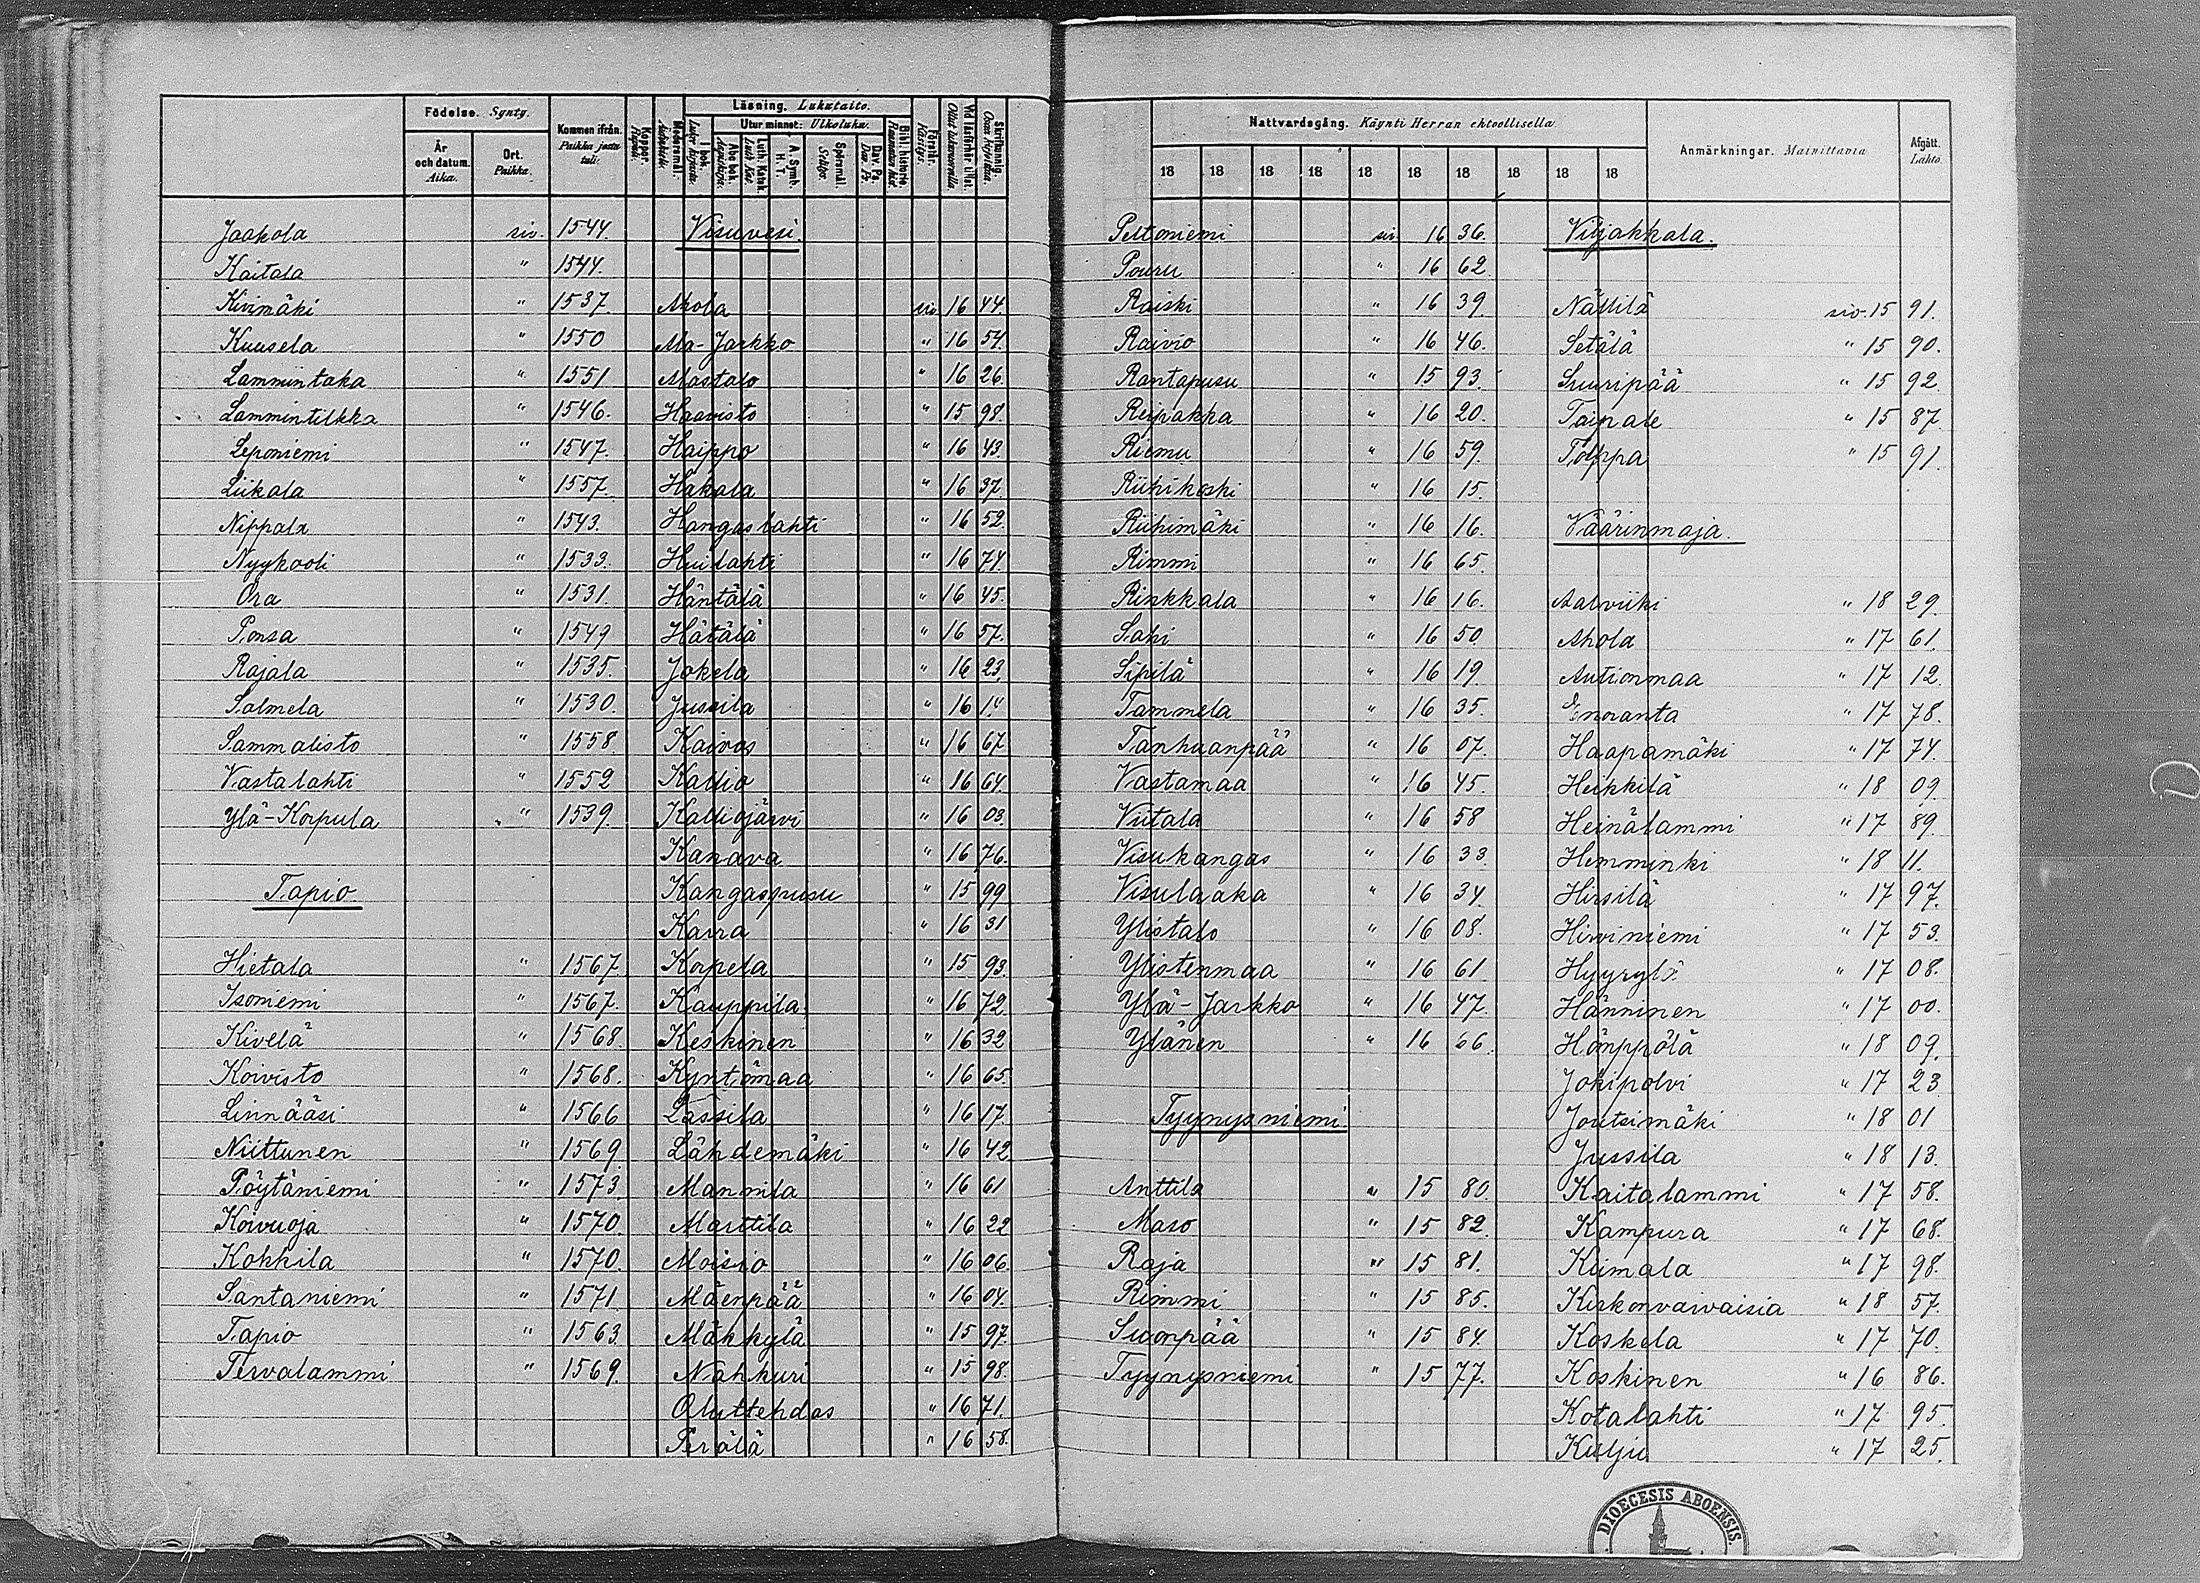 Födelse. Synty.
År och datum. Aika.
Ort. Paikka.
Kommen ifrån. Paikka josta tuli.
Koppor. Rupuli.
Läsning. Lukutaito.
I bok.
Utur minnet: Ulkoluku.
Abc bok.
Luth. Katek.
A. Symb. H. T.
Spörsmål.
Dav. Ps.
Bibl. historie.
Förstår. Käsitys.
Jaakola siv. 1544.
Kaitala " 1544.
Kivimäki " 1537.
Kuusela " 1550
Lammintaka " 1551
Lammintilkka " 1546.
Leponiemi " 1547.
Liikala " 1557.
Nippala " 1543.
Nyykooli " 1533.
Ora " 1531.
Ponsa " 1549
Rajala " 1535.
Salmela " 1530.
Sammalisto " 1558
Vastalahti " 1552
Ylä-Korpula " 1539.
Tapio
Hietala " 1567.
Isoniemi " 1567.
Kivelä " 1568.
Koivisto " 1568.
Linnääsi " 1566
Niittunen " 1569.
Pöytäniemi " 1573.
Koivuoja " 1570.
Kokkila " 1570.
Santaniemi " 1571.
Tapio " 1563.
Tervalammi " 1569.
Visuvesi.
Ahola siv. 16 44.
Ala-Jarkko " 16 54.
Alastalo " 16 26.
Haavisto " 15 98.
Haippo " 16 43.
Hakala " 16 37.
Hangaslahti " 16 52.
Huilahti " 16 74.
Häntälä " 16 45.
Hätälä " 16 57.
Jokela " 16 23.
Jussila " 16 14.
Kaivos " 16 67.
Kallio " 16 64.
Kalliojärvi " 16 03.
Kanava " 16 76.
Kangaspusu " 15 99
Karra " 16 31
Korpela " 15 93.
Kauppila " 16 72.
Keskinen " 16 32
Kyntömaa " 16 65.
Lassila " 16 17.
Lähdemäki " 16 42
Mannila " 16 61
Marttila " 16 22
Moisio " 16 06.
Mäenpää " 16 04.
Mäkkylä " 15 97.
Nahkuri " 15 98.
Oluttehdas " 16 71.
Perälä " 16 58.
Nattvardsgång. Käynti Herran ehtoollisella.
18 18 18 18 18 18 18 18 18 18
Anmärkningar. Mainittavia
Afgått. Lähtö.
Peltoniemi siv. 16 36.
Pouru " 16 62
Raiski " 16 39.
Raivio " 16 46.
Rantapusu " 15 93.
Reipakka " 16 20.
Riemu " 16 59.
Riihikoski " 16 15.
Riihimäki " 16 16.
Rimmi " 16 65.
Rinkkala " 16 16.
Saki " 16 50.
Sipilä " 16 19.
Tammela " 16 35.
Tanhuanpää " 16 07.
Vastamaa " 16 45.
Viitala " 16 58
Visukangas " 16 33.
Visulaaka " 16 34.
Ylistalo " 16 08.
Ylistenmaa " 16 61.
Ylä-Jarkko " 16 47.
Ylänen " 16 66.
Tyynysniemi.
Anttila " 15 80.
Maso " 15 82.
Raja " 15 81.
Rimmi " 15 85.
Suonpää " 15 84.
Tyynysniemi " 15 77.
Viljakkala.
Nättilä siv. 15 91.
Setälä " 15 90.
Suuripää " 15 92.
Taipale " 15 87.
Tolppa " 15 91.
Väärinmaja.
Aalviiki " 18 29.
Ahola " 17 61.
Autionmaa " 17 12.
Enoranta " 17 78.
Haapamäki " 17 74.
Heikkilä " 18 09.
Heinälammi " 17 89.
Hemminki " 18 11.
Hirsilä " 17 97.
Hirviniemi " 17 53.
Hyyrylä " 17 08.
Hänninen " 17 00.
Hömppölä " 18 09.
Jokipolvi " 17 23
Joutsimäki " 18 01
Jussila " 18 13.
Kaitalammi " 17 58.
Kampura " 17 68.
Kiimala " 17 98.
Kirkonvaivaisia " 18 57.
Koskela " 17 70.
Koskinen " 16 86.
Kotalahti " 17 95.
Kulju " 17 25.
DIOECESIS ABOENSIS.